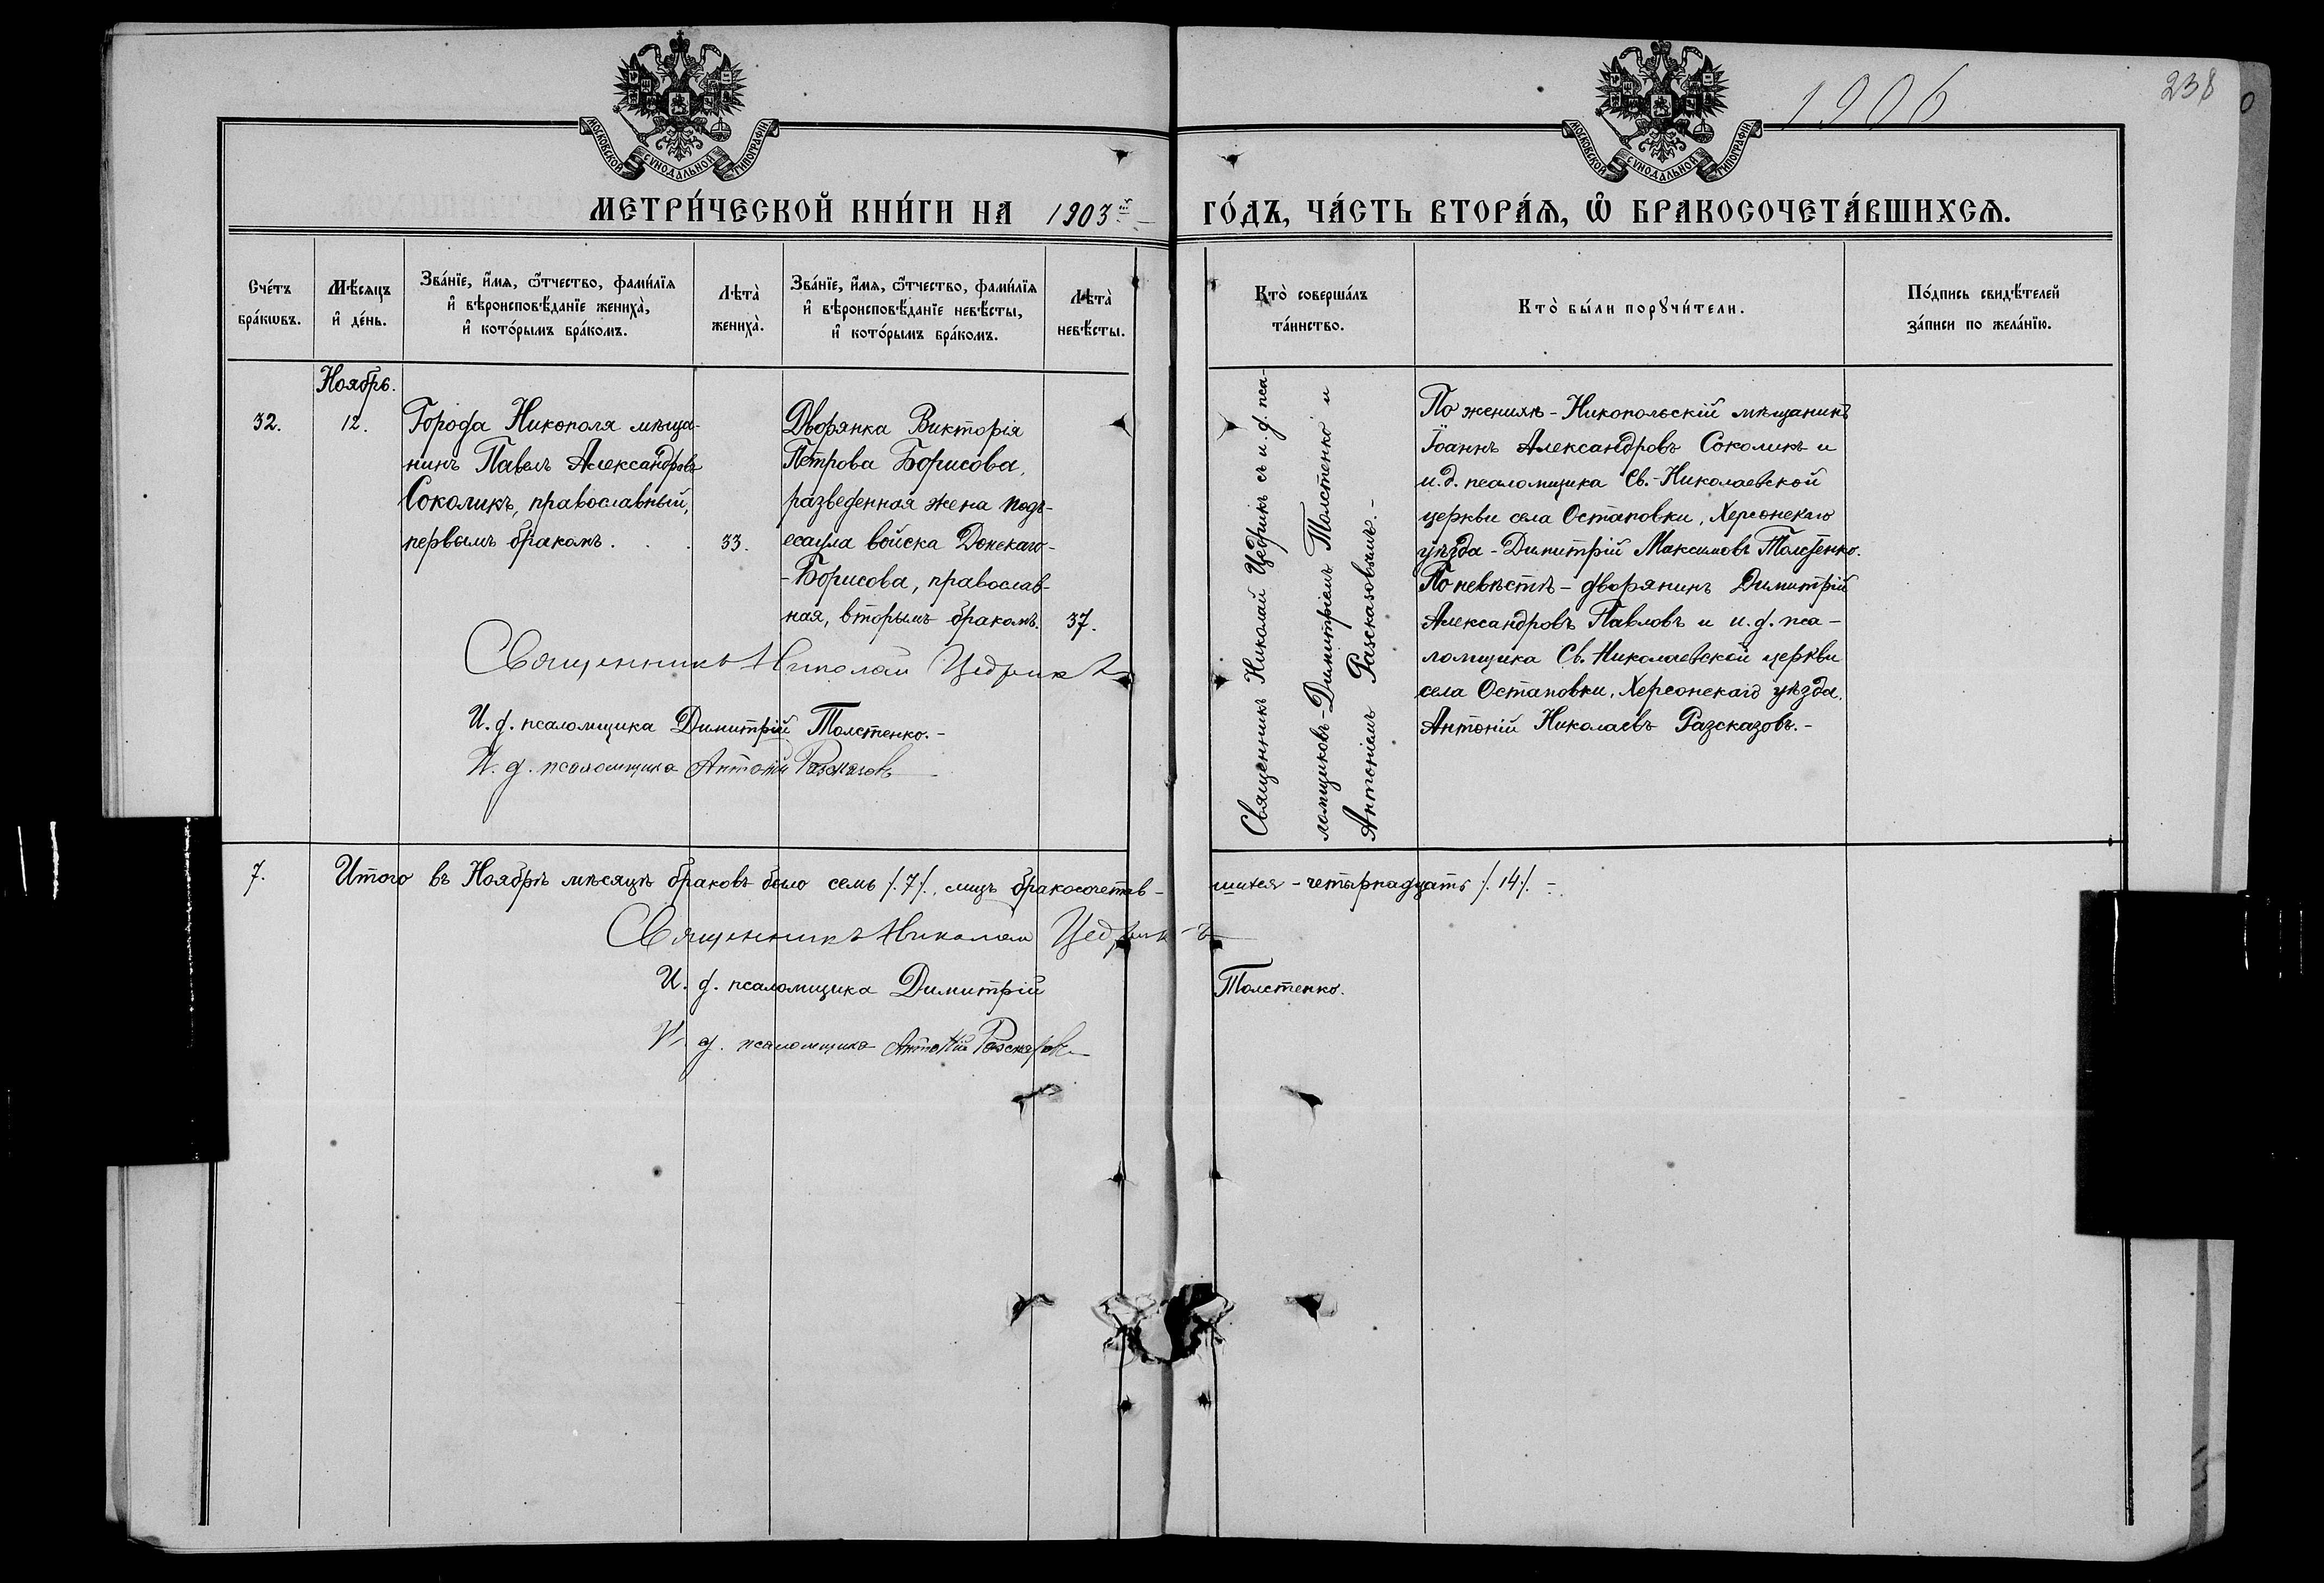 1906
238
МОСКОВСКОЙ СѴНОДАЛЬНОЙ ТИПОГРАФІИ
МОСКОВСКОЙ СѴНОДАЛЬНОЙ ТИПОГРАФІИ
МЕТРИ́ЧЕСКОЙ КНИ́ГИ НА 1903й ГО́ДЪ, ЧА́СТЬ ВТОРА́Ѧ, Ѽ БРАКОСОЧЕТА́ВШИХСѦ.
Сче́тъ
бра́кѡвъ.
Мѣ́сяцъ
и де́нь.
Зва́нїе, и́мѧ, ѻ́тчество, фами́лїѧ
и вѣроисповѣ́данїе жениха̀,
и кото́рымъ бра́комъ.
Лѣта̀
жениха̀.
Зва́нїе, и́мѧ, ѻ́тчество, фами́лїѧ
и вѣроисповѣ́данїе невѣ́сты,
и кото́рымъ бра́комъ.
Лѣта̀
невѣ́сты.
Кто̀ соверша́лъ
та́инство.
Кто̀ бы́ли порꙋчи́тели.
По́дпись свидѣ́телей
за́писи по жела́нїю.
32.
Ноябрь.
12.
Города Никополя мѣща-
нинъ Павелъ Александровъ
Соколикъ, православный,
первымъ бракомъ . . .
33.
Дворянка Викторія
Петрова Борисова,
разведенная жена подъ-
есаула войска Донскаго-
-Борисова, православ-
ная, вторымъ бракомъ.
37.
Священникъ Николай Цедрикъ
И. д. псаломщика Димитрій Толстенко.-
И. д. псаломщика Антоній Разсказовъ
Священникъ Николай Цедрикъ съ и. д. пса-
ломщиковъ-Димитріемъ Толстенко и
Антоніемъ Разсказовымъ.-
По женихѣ - Никопольскій мѣщанинъ
Іоаннъ Александровъ Соколикъ и
и. д. псаломщика Св.-Николаевской
церкви села Остаповки, Херсонскаго
уѣзда - Димитрій Максимовъ Толстенко.
По невѣстѣ - дворянинъ Димитрій
Александровъ Павловъ и и. д. пса-
ломщика Св. Николаевской церкви
села Остаповки, Херсонскаго уѣзда.
Антоній Николаевъ Разсказовъ.-
7.
Итого въ Ноябрѣ мѣсяцѣ браковъ было семь /.7/., лицъ бракосочетав-шихся - четырнадцать /.14/. -
Священникъ Николай Цедрикъ
И. д. псаломщика Димитрій Толстенко.
И. д. псаломщика Антоній Разсказовъ